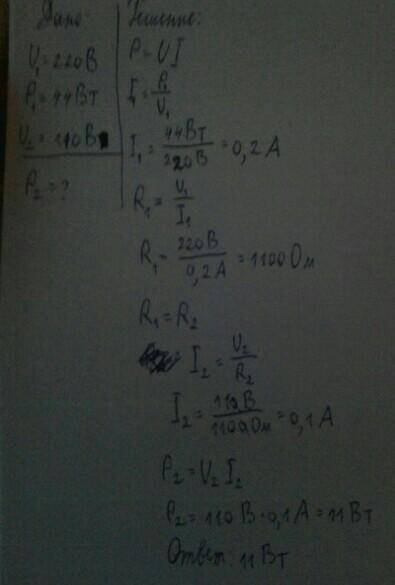 Дано: Решение:
U₁ = 220 В
P₁ = 44 Вт
U₂ = 110 В
P₂ = ?
P = UI
I₁ = P₁/U₁
I₁ = 44 Вт/220 В = 0,2 А
R₁ = U₁/I₁
R₁ = 220 В/0,2 А = 1100 Ом
R₁ = R₂
I₂ = U₂/R₂
I₂ = 110 В/1100 Ом = 0,1 А
P₂ = U₂ I₂
P₂ = 110 В · 0,1 А = 11 Вт
Ответ: 11 Вт